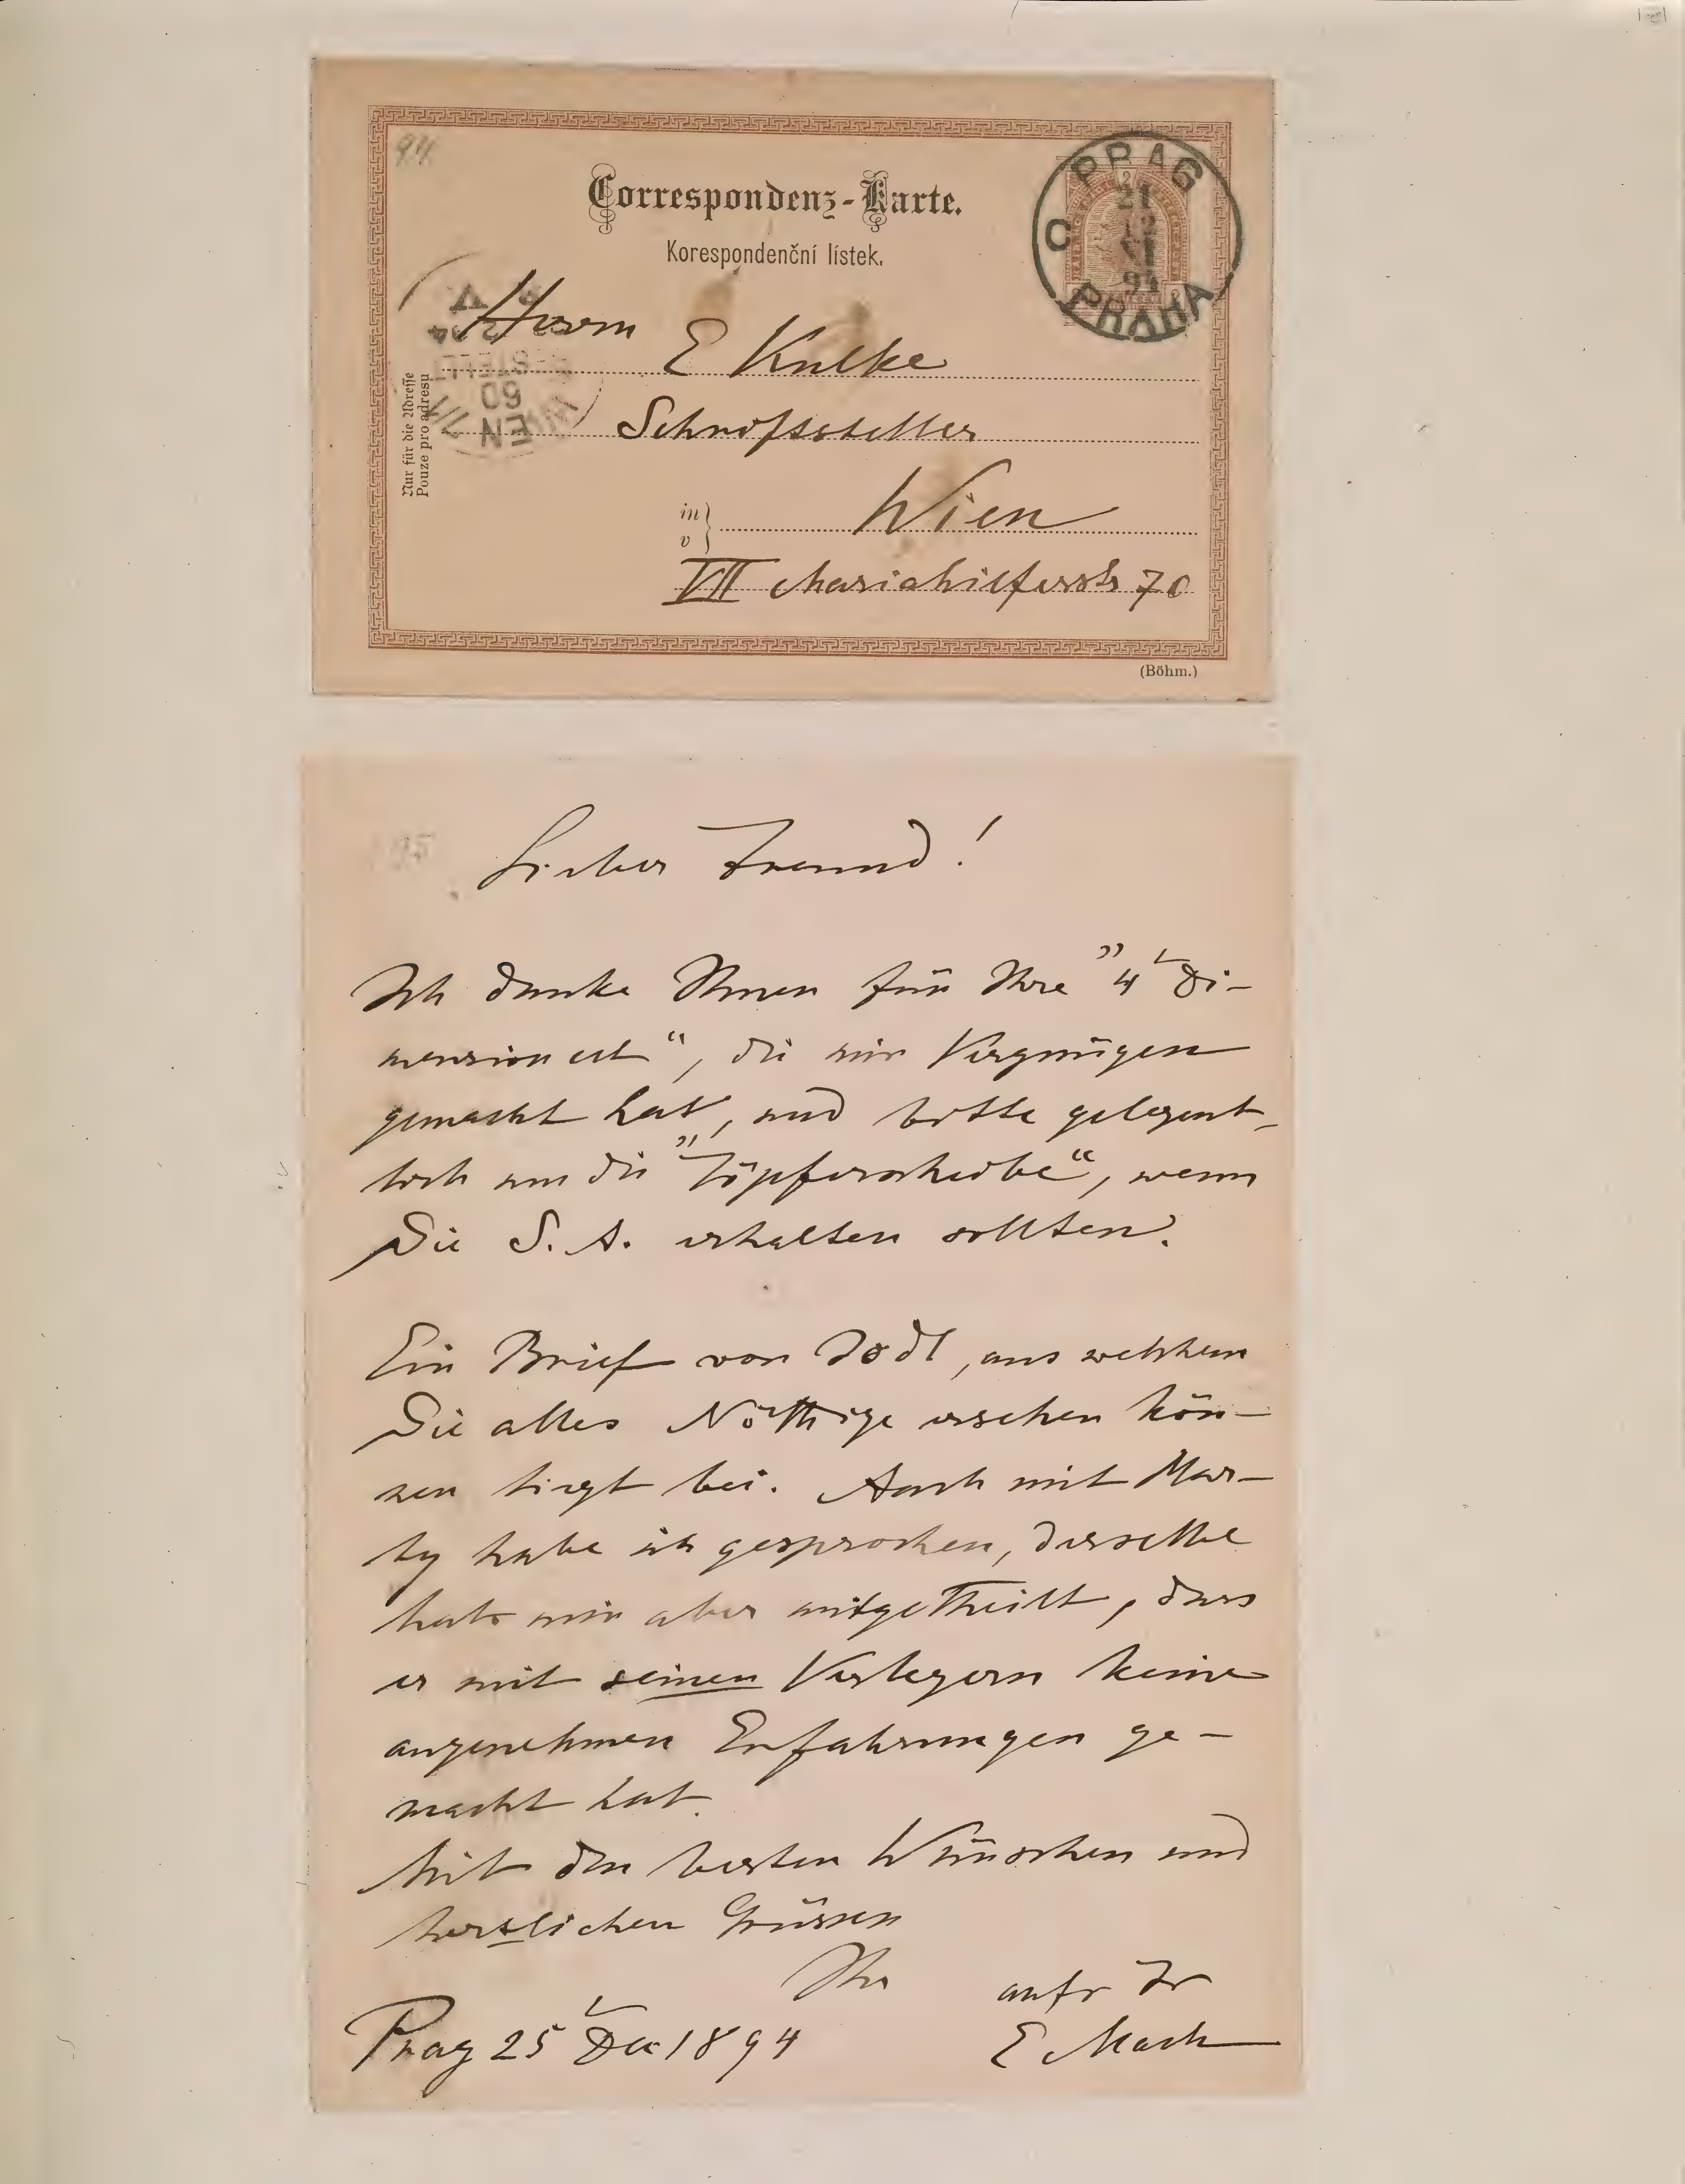 94.
Correspondenz-Karte.
Korespondenční lístek.
PRAG
21
12
VI
94
C
PRAHA
WIEN 7/1
60
BESTELLT
Herrn
E Kulke
Schriftsteller
in
v
Wien
VII Mariahilferstr 70
Nur für die Adresse
Pouze pro adresu
(Böhm.)
95
Lieber Freund!
Ich danke Ihnen für Ihre „4 Di-
mension etc“, die mir Vergnügen
gemacht hat, und bitte gelegent-
lich um die „Töpferscheibe“, wenn
Sie S. A. erhalten sollten.
Ein Brief von Jodl, aus welchem
Sie alles Nöthige ersehen kön-
nen liegt bei. Auch mit Mar-
ty habe ich gesprochen, derselbe
hat mir aber mitgetheilt, dass
er mit seinen Verlegern keine
angenehmen Erfahrungen ge-
macht hat.
Mit den besten Wünschen und
herzlichen Grüssen
Ihr aufr Fr
Prag 25 Dec 1894 E Mach